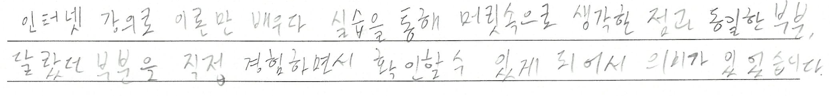 인터넷 강의로 이론만 배우다 실습을 통해 머릿속으로 생각한 점과 동일한 부분,
달랐던 부분을 직접 경험하면서 확인할 수 있게 되어서 의미가 있었습니다.